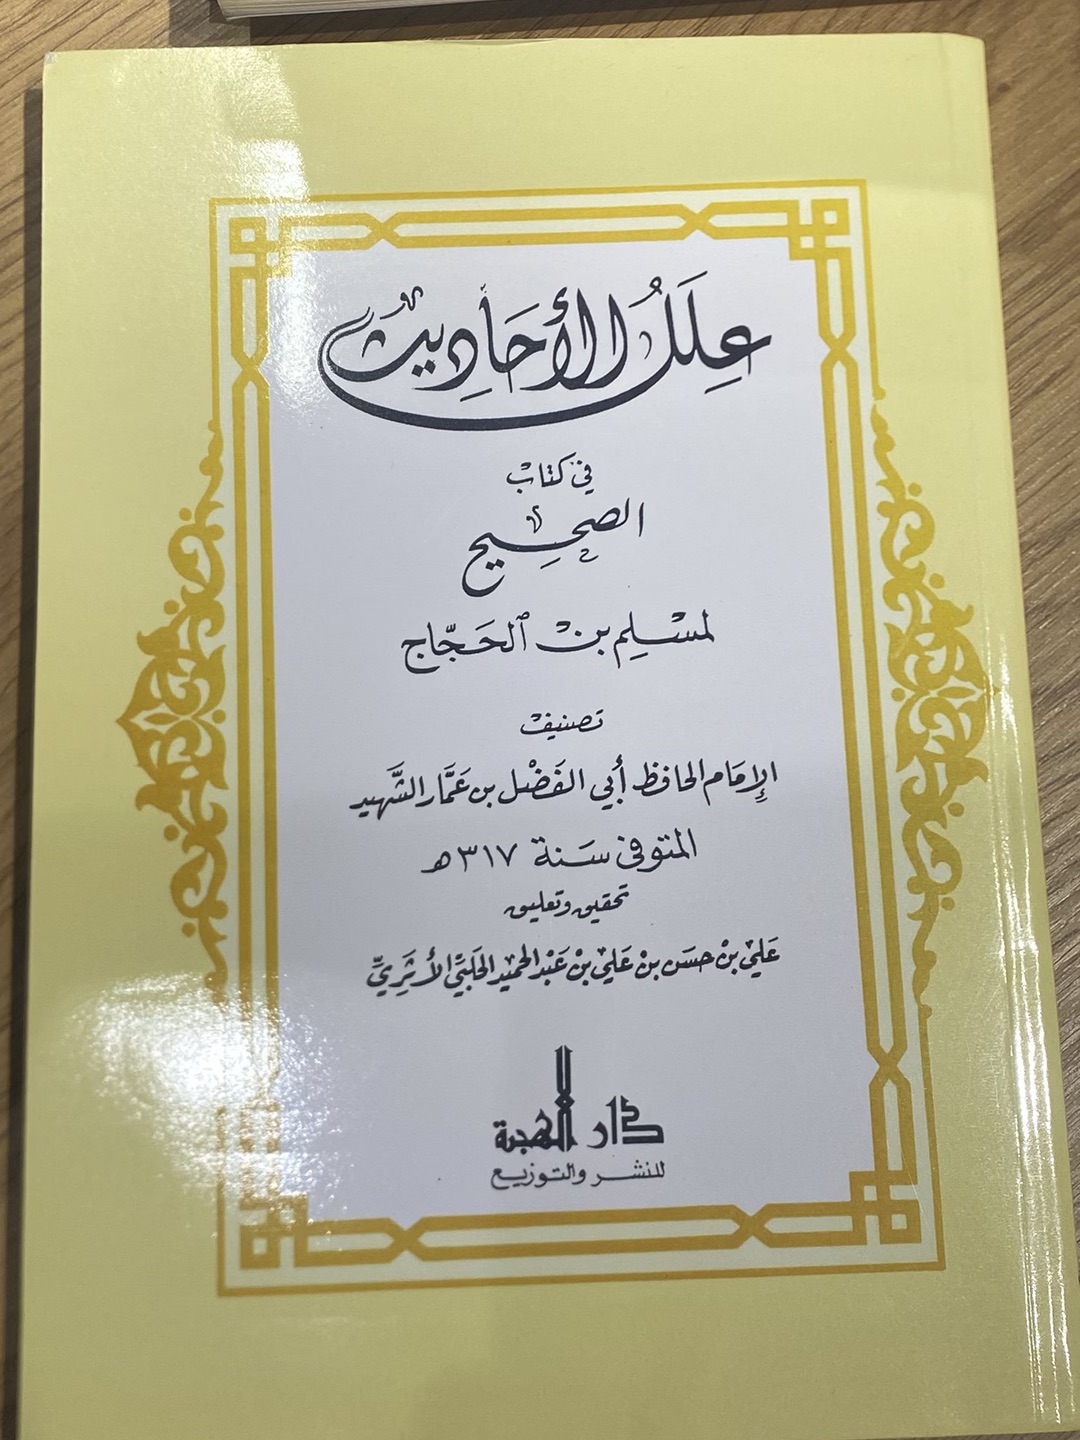 عِلَلُ الأَحَادِيث
في كتاب
الصحيح
لمسلم بن الحَجّاج
تصنيف
الإمام الحافظ أبي الفَضْل بن عَمَّار الشَّهيد
المتوفى سَنة ٣١٧ هـ
تحقيق وتعليق
عَلي بن حسَن بن عَلي بن عَبد الحميد الحَلَبيّ الأَثَرِيّ
دار الهجرة
للنشر والتوزيع